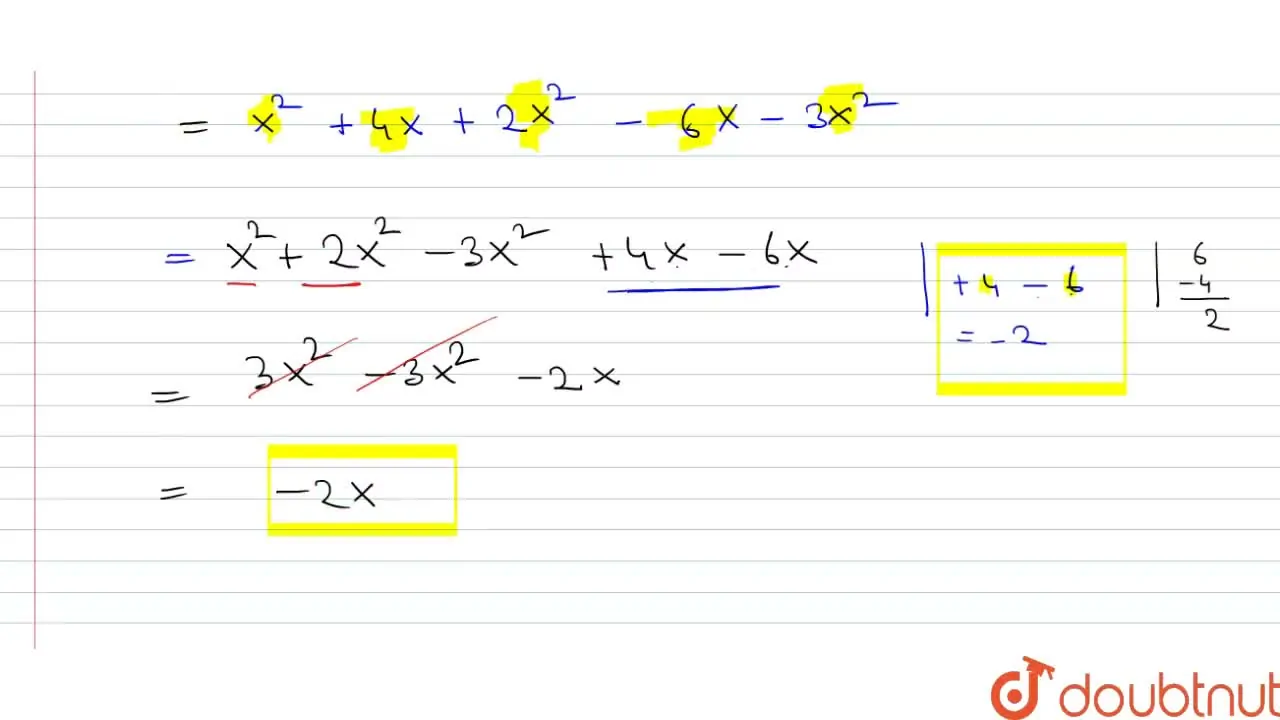 = x² + 4x + 2x² - 6x - 3x²
= x² + 2x² - 3x² + 4x - 6x
| + 4 - 6
= - 2
| 6
- 4
2
= 3x² - 3x² - 2x
= - 2x
doubtnut